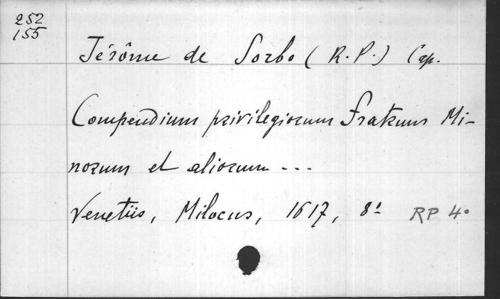 252
155
Jérôme de Sorbo (R. P.) Cap.
Compendium privilegiorum fratrum Mi-
norum et aliorum ...
Venetiis, Milocus, 1617, 8° RP 4°